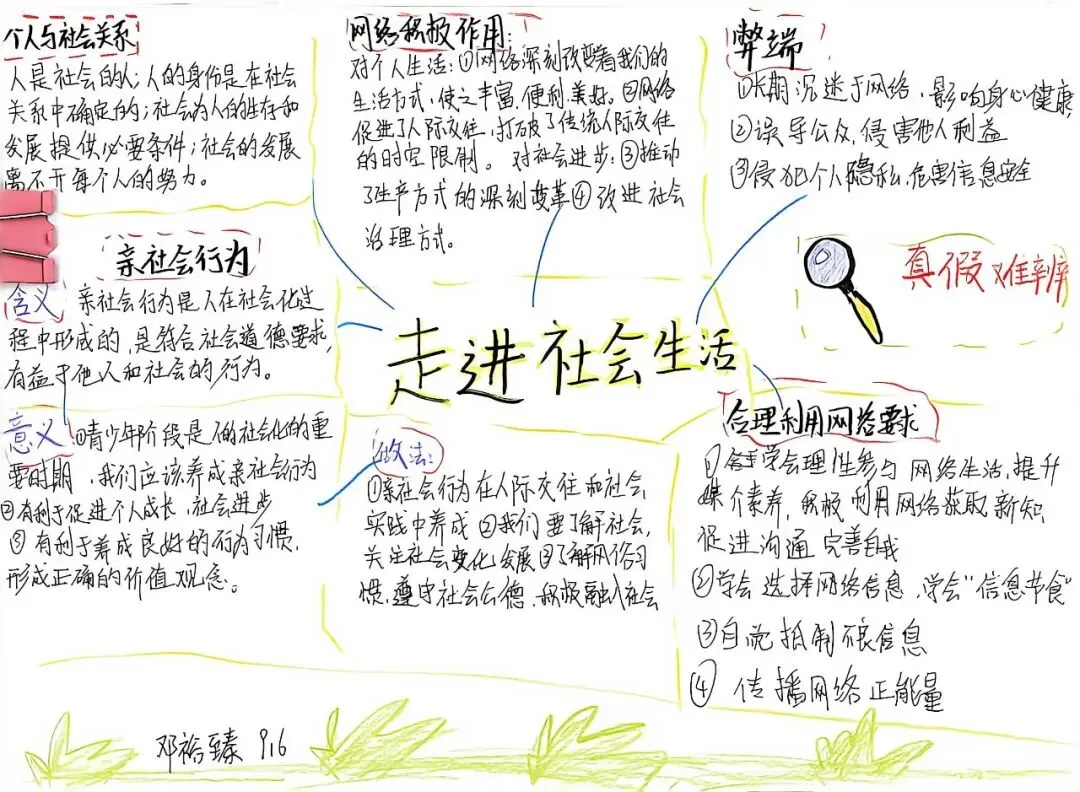 个人与社会关系
人是社会的人；人的身份是在社会
关系中确定的；社会为人的生存和
发展提供必要条件；社会的发展
离不开每个人的努力。
网络积极作用：
对个人生活：①网络深刻改变着我们的
生活方式，使之丰富、便利、美好。②网络
促进了人际交往，打破了传统人际交往
的时空限制。 对社会进步：③推动
了生产方式的深刻变革④改进社会
治理方式。
弊端
①长期沉迷于网络，影响身心健康
②误导公众，侵害他人利益
③侵犯个人隐私，危害信息安全
真假难辨
亲社会行为
含义 亲社会行为是人在社会化过
程中形成的，是符合社会道德要求，
有益于他人和社会的行为。
走进社会生活
意义 ①青少年阶段是人的社会化的重
要时期，我们应该养成亲社会行为
②有利于促进个人成长，社会进步
③有利于养成良好的行为习惯，
形成正确的价值观念。
做法：
①亲社会行为在人际交往和社会
实践中养成②我们要了解社会，
关注社会变化发展③了解风俗习
惯，遵守社会公德，积极融入社会
合理利用网络要求
①学会理性参与网络生活，提升
媒介素养，积极利用网络获取新知，
促进沟通 完善自我
②学会选择网络信息，学会“信息节食”
③自觉抵制不良信息
④传播网络正能量
邓裕臻 916